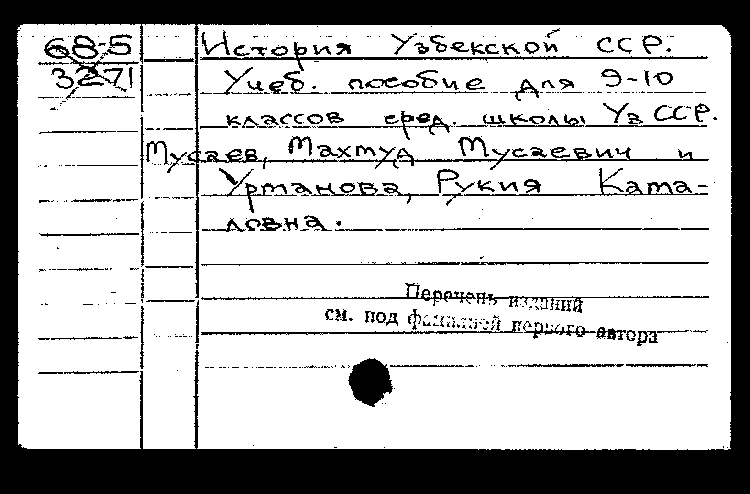 68-5
3271
История Узбекской ССР.
Учеб. пособие для 9-10
классов сред. школы Уз ССР.
Мусаев, Махмуд Мусаевич и
Урманова, Рукия Кама-
ловна.
Перечень изданий
см. под фамилией первого автора